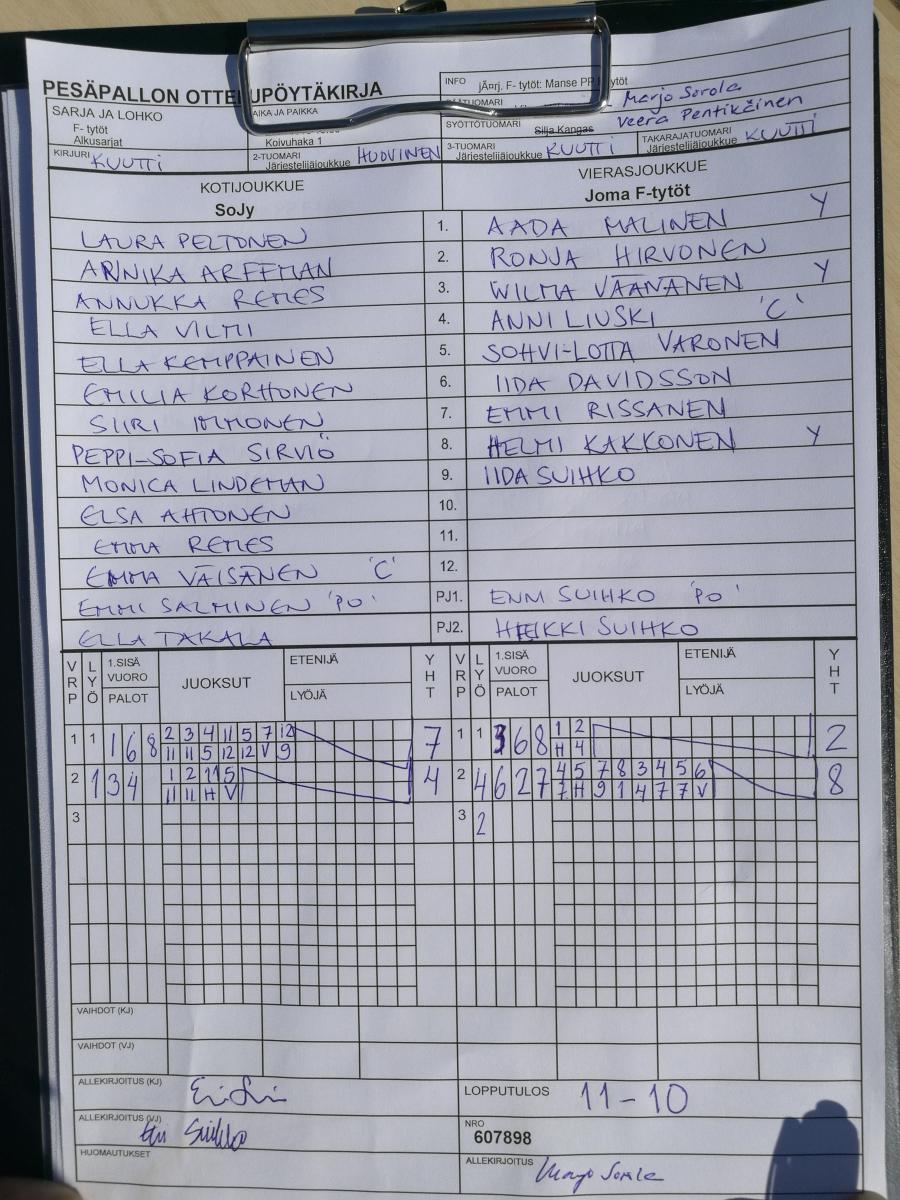 PESÄPALLON OTTELUPÖYTÄKIRJA
INFO jÃ¤rj. F- tytöt: Manse PP tytöt
SARJA JA LOHKO
F- tytöt
Alkusarjat
AIKA JA PAIKKA
Koivuhaka 1
Marjo Sorola
SYÖTTÖTUOMARI Silja Kangas Veera Pentikäinen
KIRJURI KUUTTI
2-TUOMARI Järjestelijäjoukkue HUOVINEN
3-TUOMARI Järjestelijäjoukkue KUUTTI
TAKARAJATUOMARI Järjestelijäjoukkue KUUTTI
KOTIJOUKKUE
SoJy
VIERASJOUKKUE
Joma F-tytöt
LAURA PELTONEN 1. AADA MALINEN Y
ANNIKA ARFFMAN 2. RONJA HIRVONEN
ANNUKKA REMES 3. WILMA VÄÄNÄNEN Y
ELLA VILMI 4. ANNI LIUSKI 'C'
ELLA KEMPPAINEN 5. SOHVI-LOTTA VARONEN
EMILIA KORHONEN 6. IIDA DAVIDSSON
SIIRI IMMONEN 7. EMMI RISSANEN
PEPPI-SOFIA SIRVIÖ 8. HELMI KAKKONEN Y
MONICA LINDEMAN 9. IIDA SUIHKO
ELSA AHTONEN 10.
EMMA REMES 11.
EMMA VÄISÄNEN 'C' 12.
EMMI SALMINEN 'PO' PJ1. ENNI SUIHKO 'PO'
ELLA TAKALA PJ2. HEIKKI SUIHKO
VRP LYÖ 1.SISÄ VUORO PALOT JUOKSUT ETENIJÄ LYÖJÄ YHT VRP LYÖ 1.SISÄ VUORO PALOT JUOKSUT ETENIJÄ LYÖJÄ YHT
1 1 1 6 8 2 3 4 11 5 7 12 7 1 1 3 6 8 1 2 2
11 11 5 12 12 V 9 H 4
2 1 3 4 1 2 11 5 4 2 4 6 2 7 4 5 7 8 3 4 5 6 8
11 11 H V 7 H 9 1 4 7 7 V
3 3 2
VAIHDOT (KJ)
VAIHDOT (VJ)
ALLEKIRJOITUS (KJ)
LOPPUTULOS 11-10
ALLEKIRJOITUS (VJ) Suihko
NRO
607898
HUOMAUTUKSET
ALLEKIRJOITUS Marjo Sorola